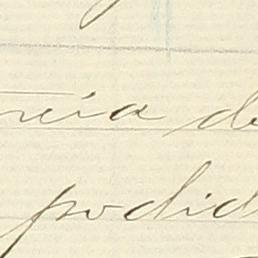 reia de
podid